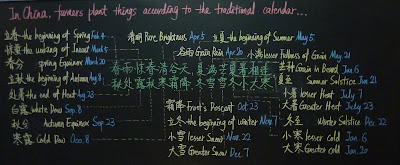 In China, farmers plant things according to the traditional calendar...
立春 the beginning of Spring Feb 4
惊蛰 the waking of Insect Mar 5
春分 spring Equinox Mar 20
立秋 the beginning of Autumn Aug 8
处暑 the end of Heat Aug 23
白露 White Dew Sep.8
秋分 Autumn Equinox Sep 23
寒露 Cold Dew Oct.8
清明 Pure Brightness Apr.5
谷雨 Grain Rain Apr 20
春雨惊春清谷天 夏满芒夏暑相连
秋处露秋寒霜降 冬雪雪冬小大寒
霜降 Frost's Descent Oct 23
立冬 the beginning of winter Nov 7
小雪 lesser Snow Nov.22
大雪 Greater Snow Dec 7
立夏 the beginning of Summer May 5
小满 lesser Fullness of Grain May 21
芒种 Grain in Beard Jun.6
夏至 Summer Solstice Jun 21
小暑 lesser Heat July 7
大暑 Greater Heat July 23
冬至 Winter Solstice Dec 22
小寒 lesser Cold Jan 6
大寒 Greater Cold Jan.20